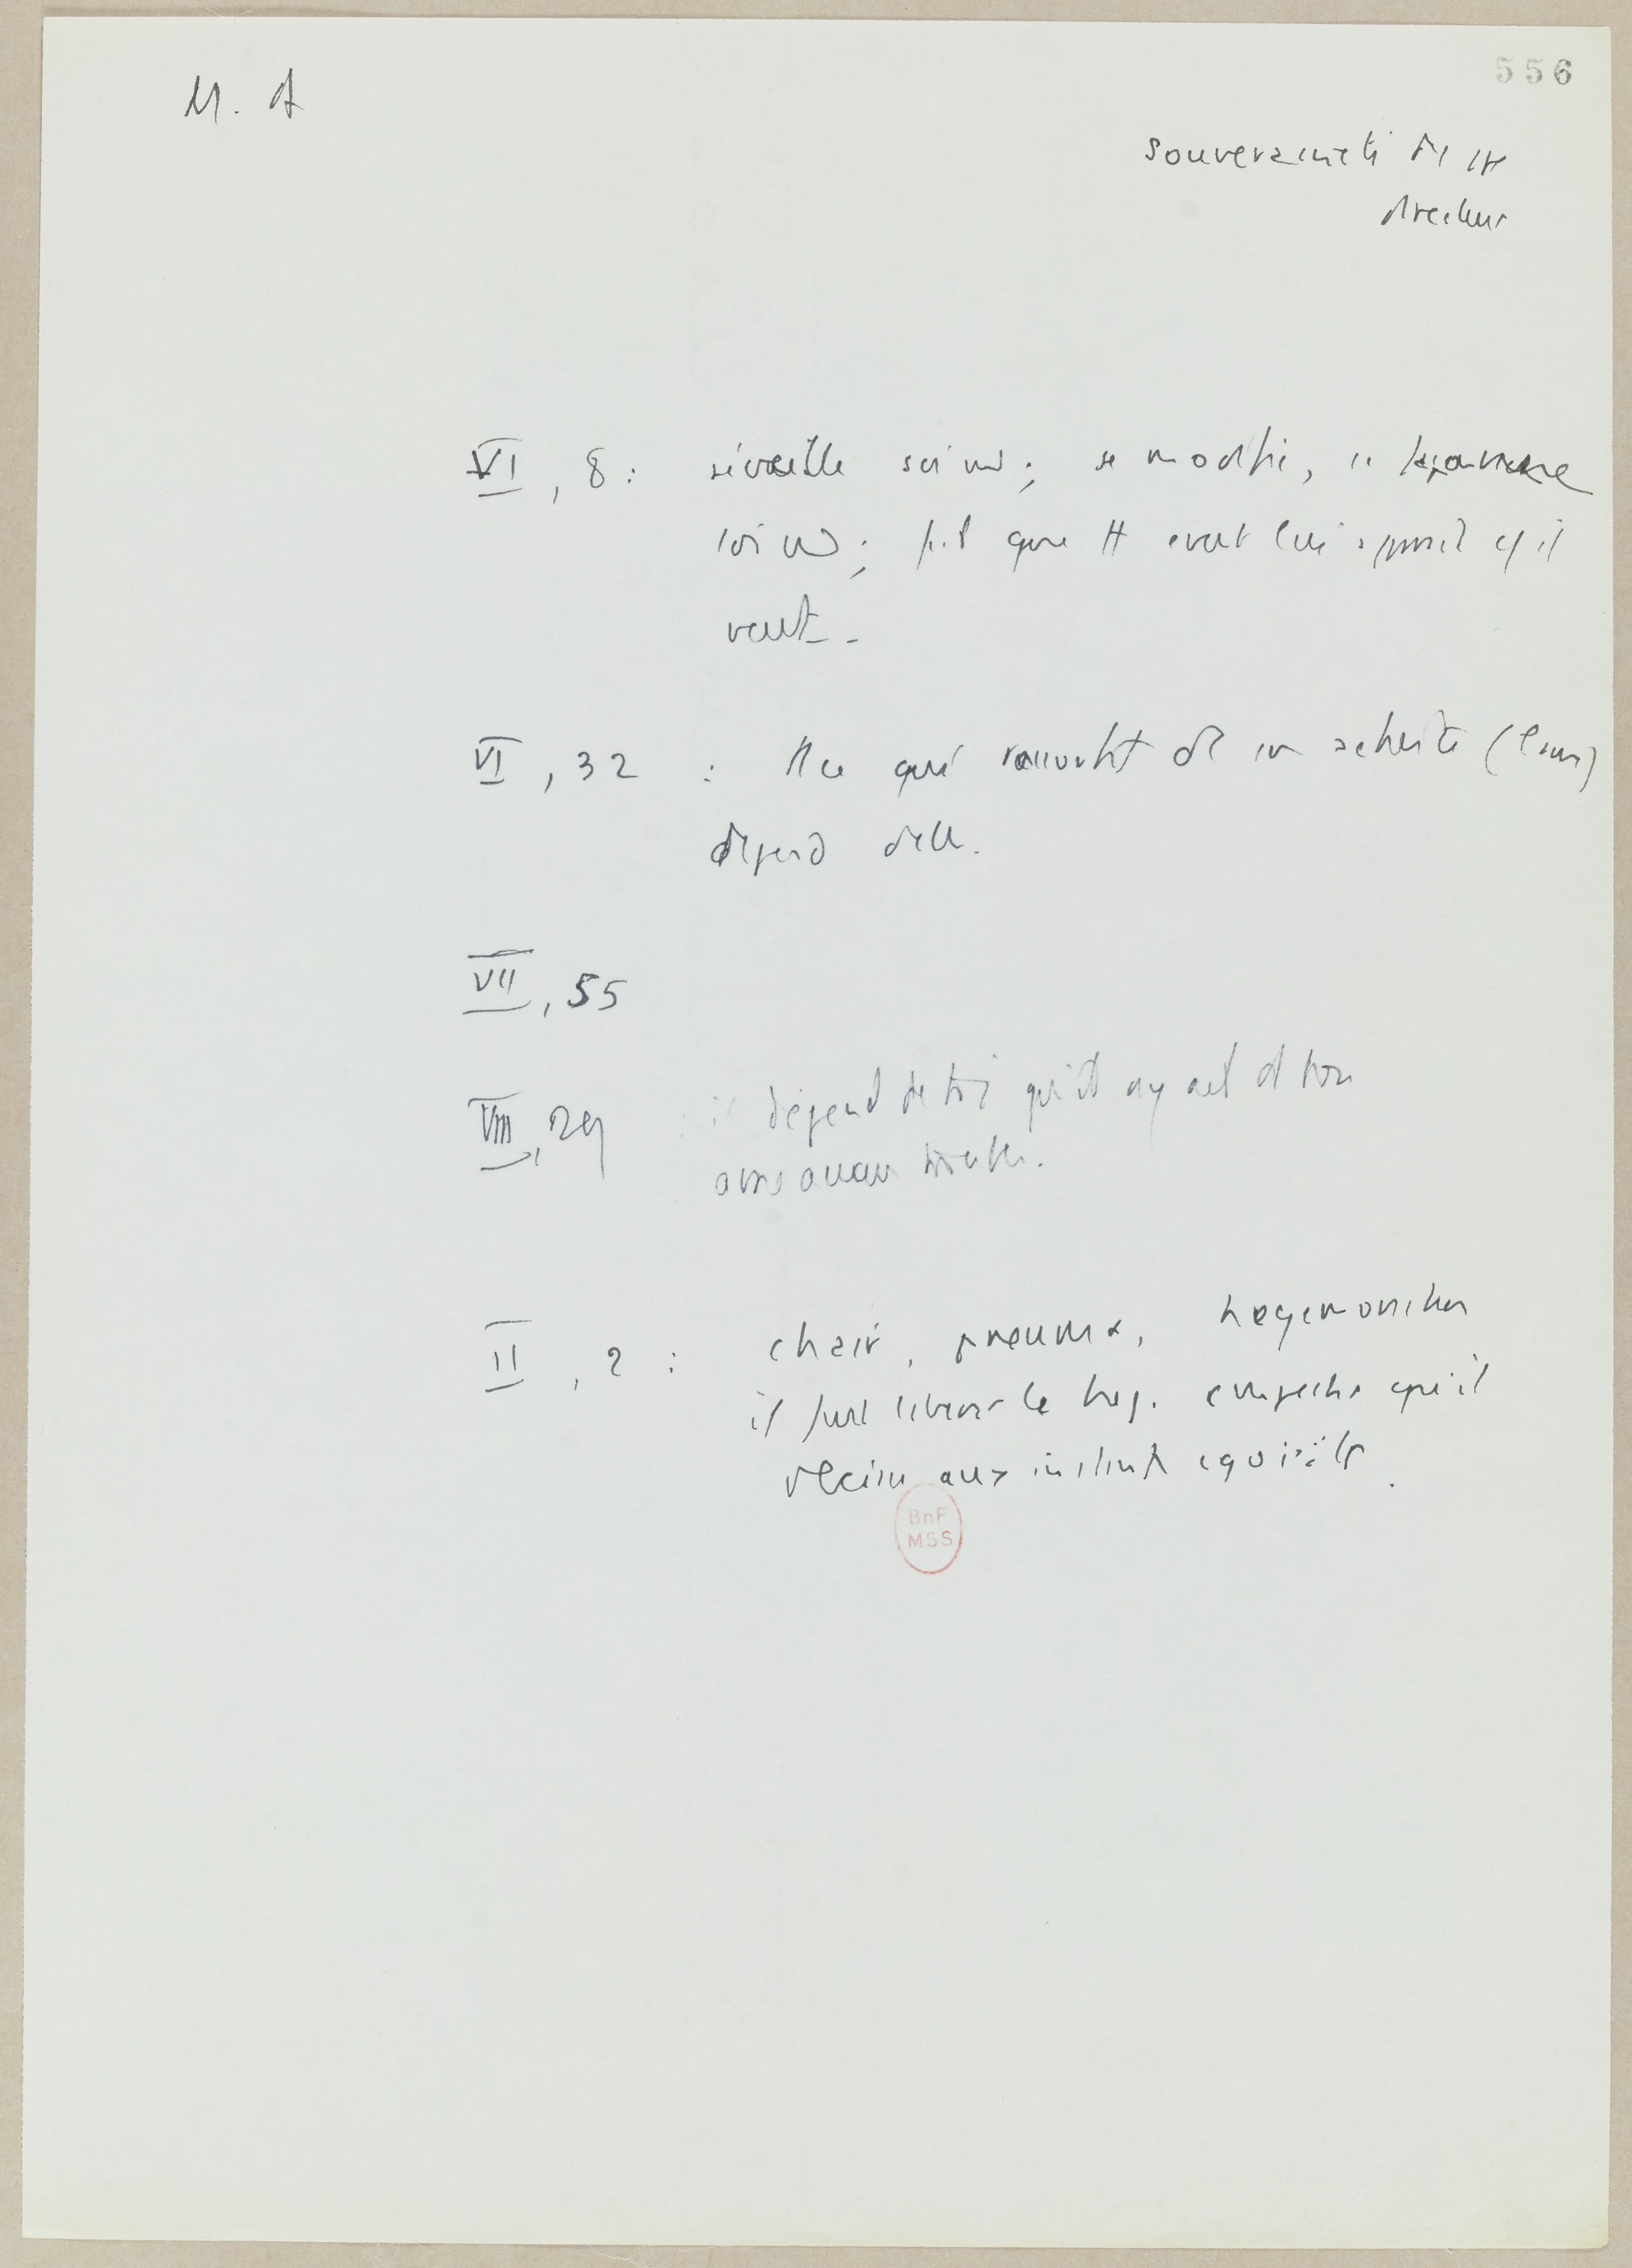 M. A
556
souveraineté
directeur
VI, 8 : s'éveille soi m ; se modifie, se façonne
soi m ; fait que tt évent lui apparaît cq il
veut -
VI, 32 : tt ce qui ressortit de son activité (l'âme)
dépend d'elle.
VII, 55
VIII, 29 il dépend de toi qu'il n'y ait
âme aucun trouble.
II, 2 : chair, pneuma, hegemonikon
il faut libérer le heg. empêcher qu'il
obéisse aux instincts égoïstes.
BnF
MSS